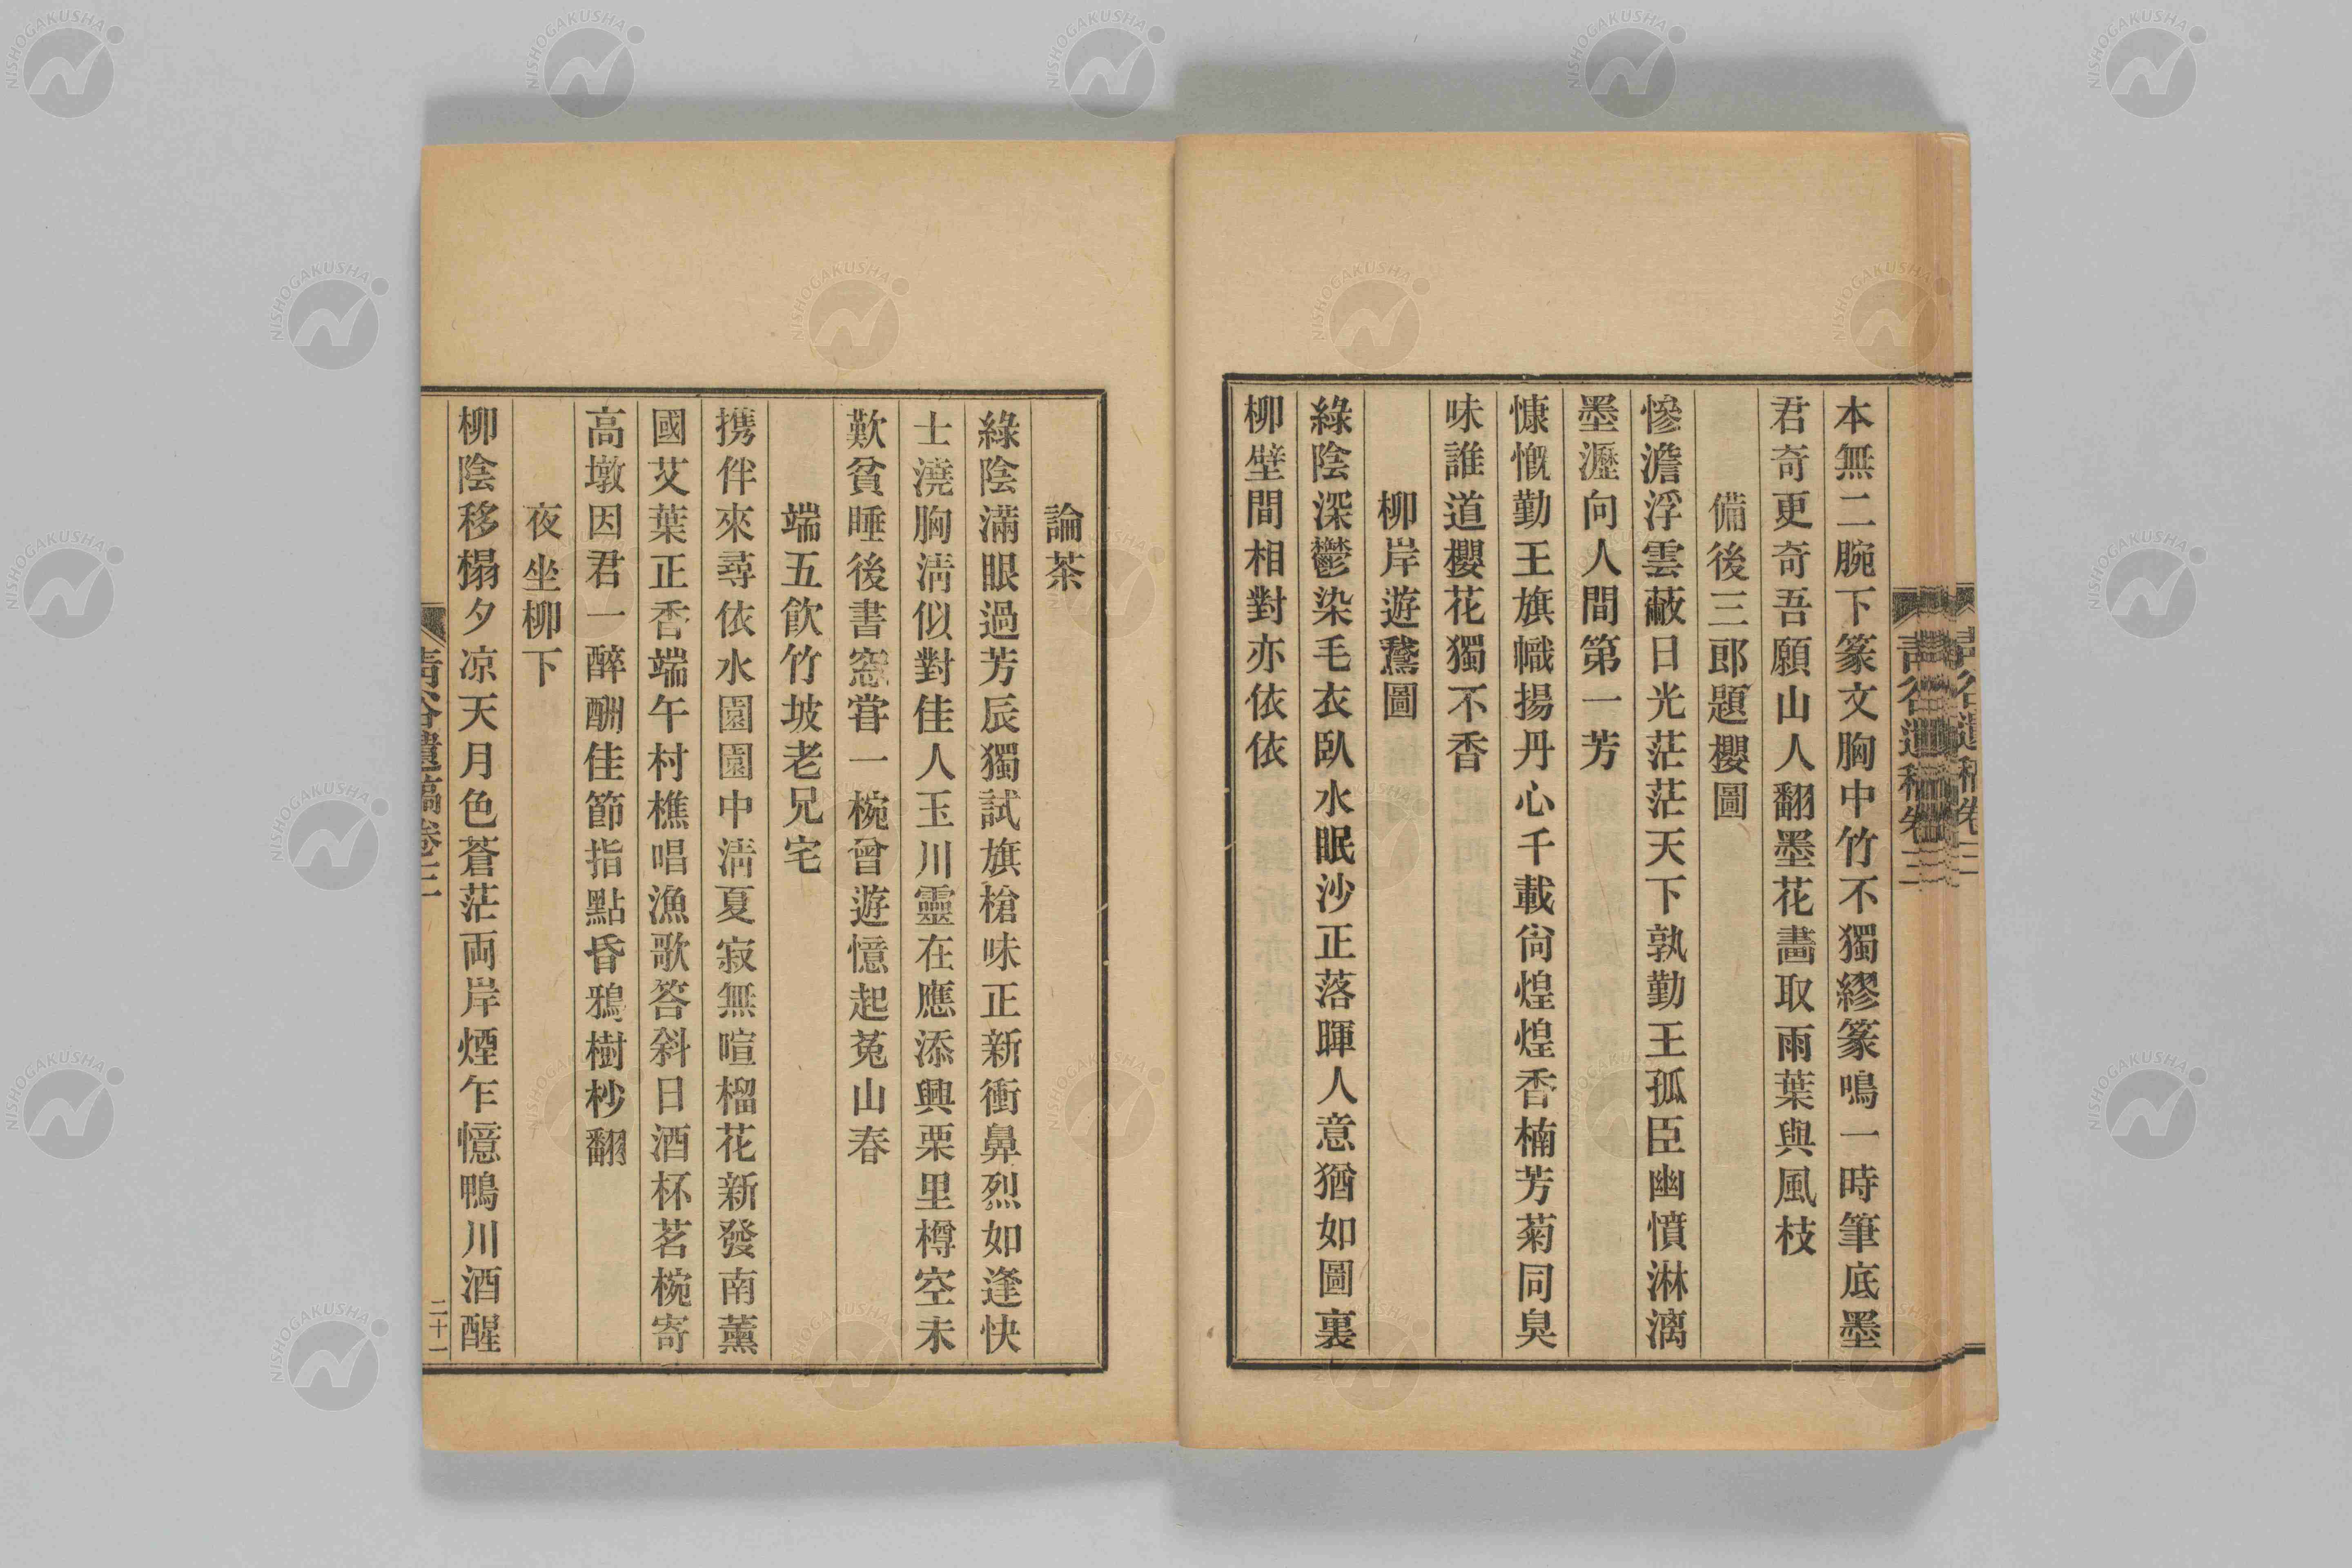 本無二腕下篆文胸中竹不獨繆篆鳴一時筆底墨
君奇更奇吾願山人翻墨花畵取雨葉與風枝
備後三郎題櫻圖
慘澹浮雲蔽日光茫茫天下孰勤王孤臣幽憤淋漓
墨瀝向人間第一芳
慷慨勤王旗幟揚丹心千載尙煌煌香楠芳菊同臭
味誰道櫻花獨不香
柳岸遊鶩圖
綠陰深鬱染毛衣臥水眠沙正落暉人意猶如圖裏
柳壁間相對亦依依
論茶
綠陰滿眼過芳辰獨試旗槍味正新衝鼻烈如逢快
士澆胸淸似對佳人玉川靈在應添興栗里樽空未
歎貧睡後書窓甞一椀曾遊憶起菟山春
端五飮竹坡老兄宅
携伴來尋依水園園中淸夏寂無喧榴花新發南薰
國艾葉正香端午村樵唱漁歌答斜日酒杯茗椀寄
高墩因君一醉酬佳節指點昏鴉樹杪翻
夜坐柳下
柳陰移榻夕凉天月色蒼茫両岸煙乍憶鴨川酒醒
靑谷遺稿卷三
二十一
NISHOGAKUSHA